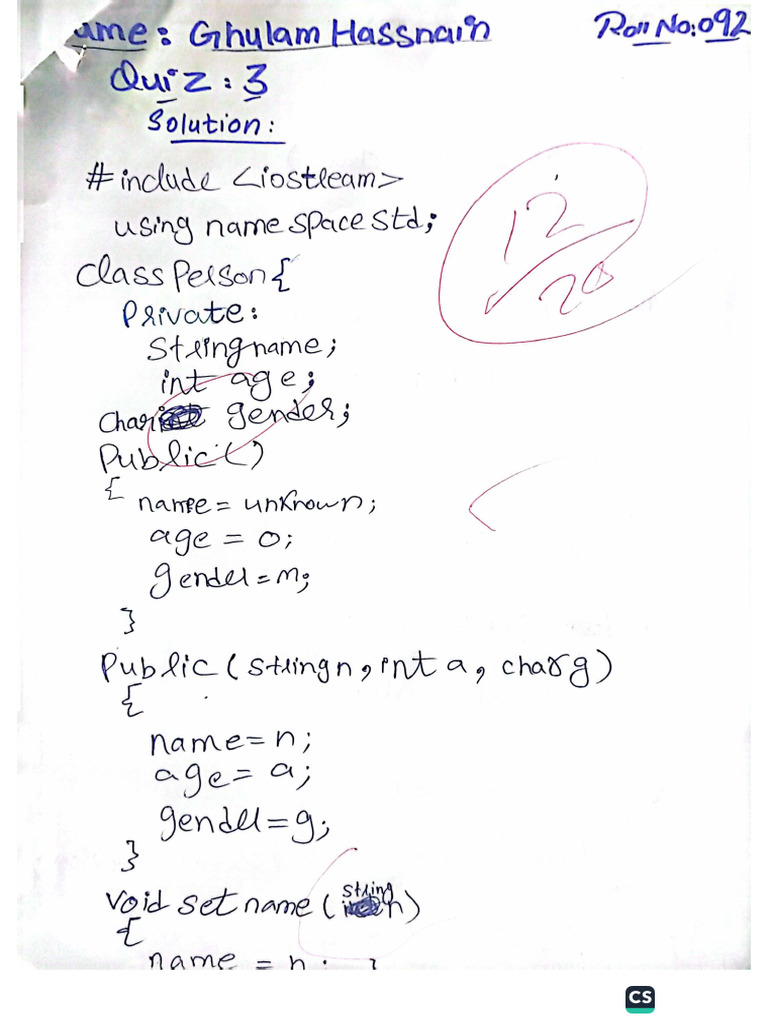 ame: Ghulam Hassnain Roll No:092
Quiz:3
Solution:
#include <iostream>
using namespace std;
12/20
class Person{
Private:
String name;
int age;
Char gender;
Public()
{ name = unknown;
age = 0;
gender = m;
}
Public (string n, int a, char g)
{
name = n;
age = a;
gender = g;
}
void set name (string n)
{
name = n; }
CS